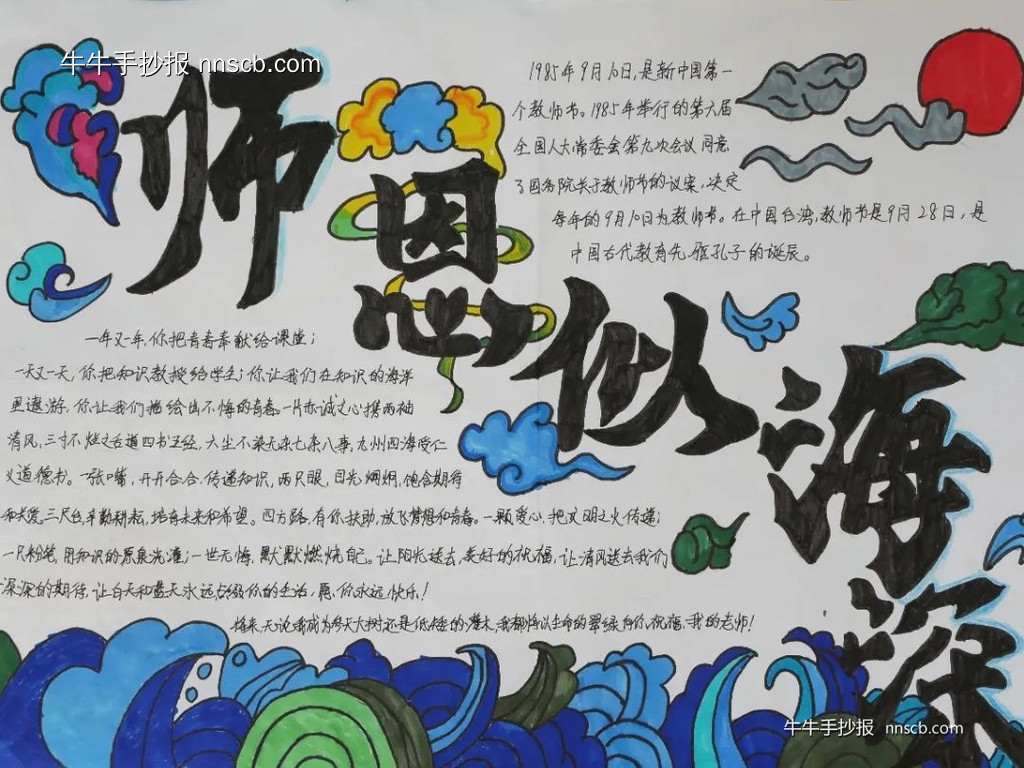 牛牛手抄报 nnscb.com
师恩似海深
1985年9月10日,是新中国第一
个教师节。1985年举行的第六届
全国人大常委会第九次会议同意
了国务院关于教师节的议案,决定
每年的9月10日为教师节。在中国台湾,教师节是9月28日,是
中国古代教育先驱孔子的诞辰。
一年又一年,你把青春奉献给课堂;
一天又一天,你把知识教授给学生;你让我们在知识的海洋
里遨游,你让我们描绘出不悔的青春。一片赤诚之心携两袖
清风,三寸不烂之舌道四书五经,六尘不染无杂七杂八事,九州四海受仁
义道德书。一张嘴,开开合合,传递知识,两只眼,目光炯炯,饱含期待
和关爱,三尺台,辛勤耕耘,培育未来和希望。四方路,有你扶助,放飞梦想和青春。一颗爱心,把文明之火传递;
一只粉笔,用知识的原泉浇灌;一世无悔,默默燃烧自己。让阳光送去美好的祝福,让清风送去我们
深深的期待,让白天和蓝天永远点缀你的生活,愿你永远快乐!
将来,无论我成为参天大树还是低矮的灌木,我都将以生命的翠绿向你祝福,我的老师!
牛牛手抄报 nnscb.com